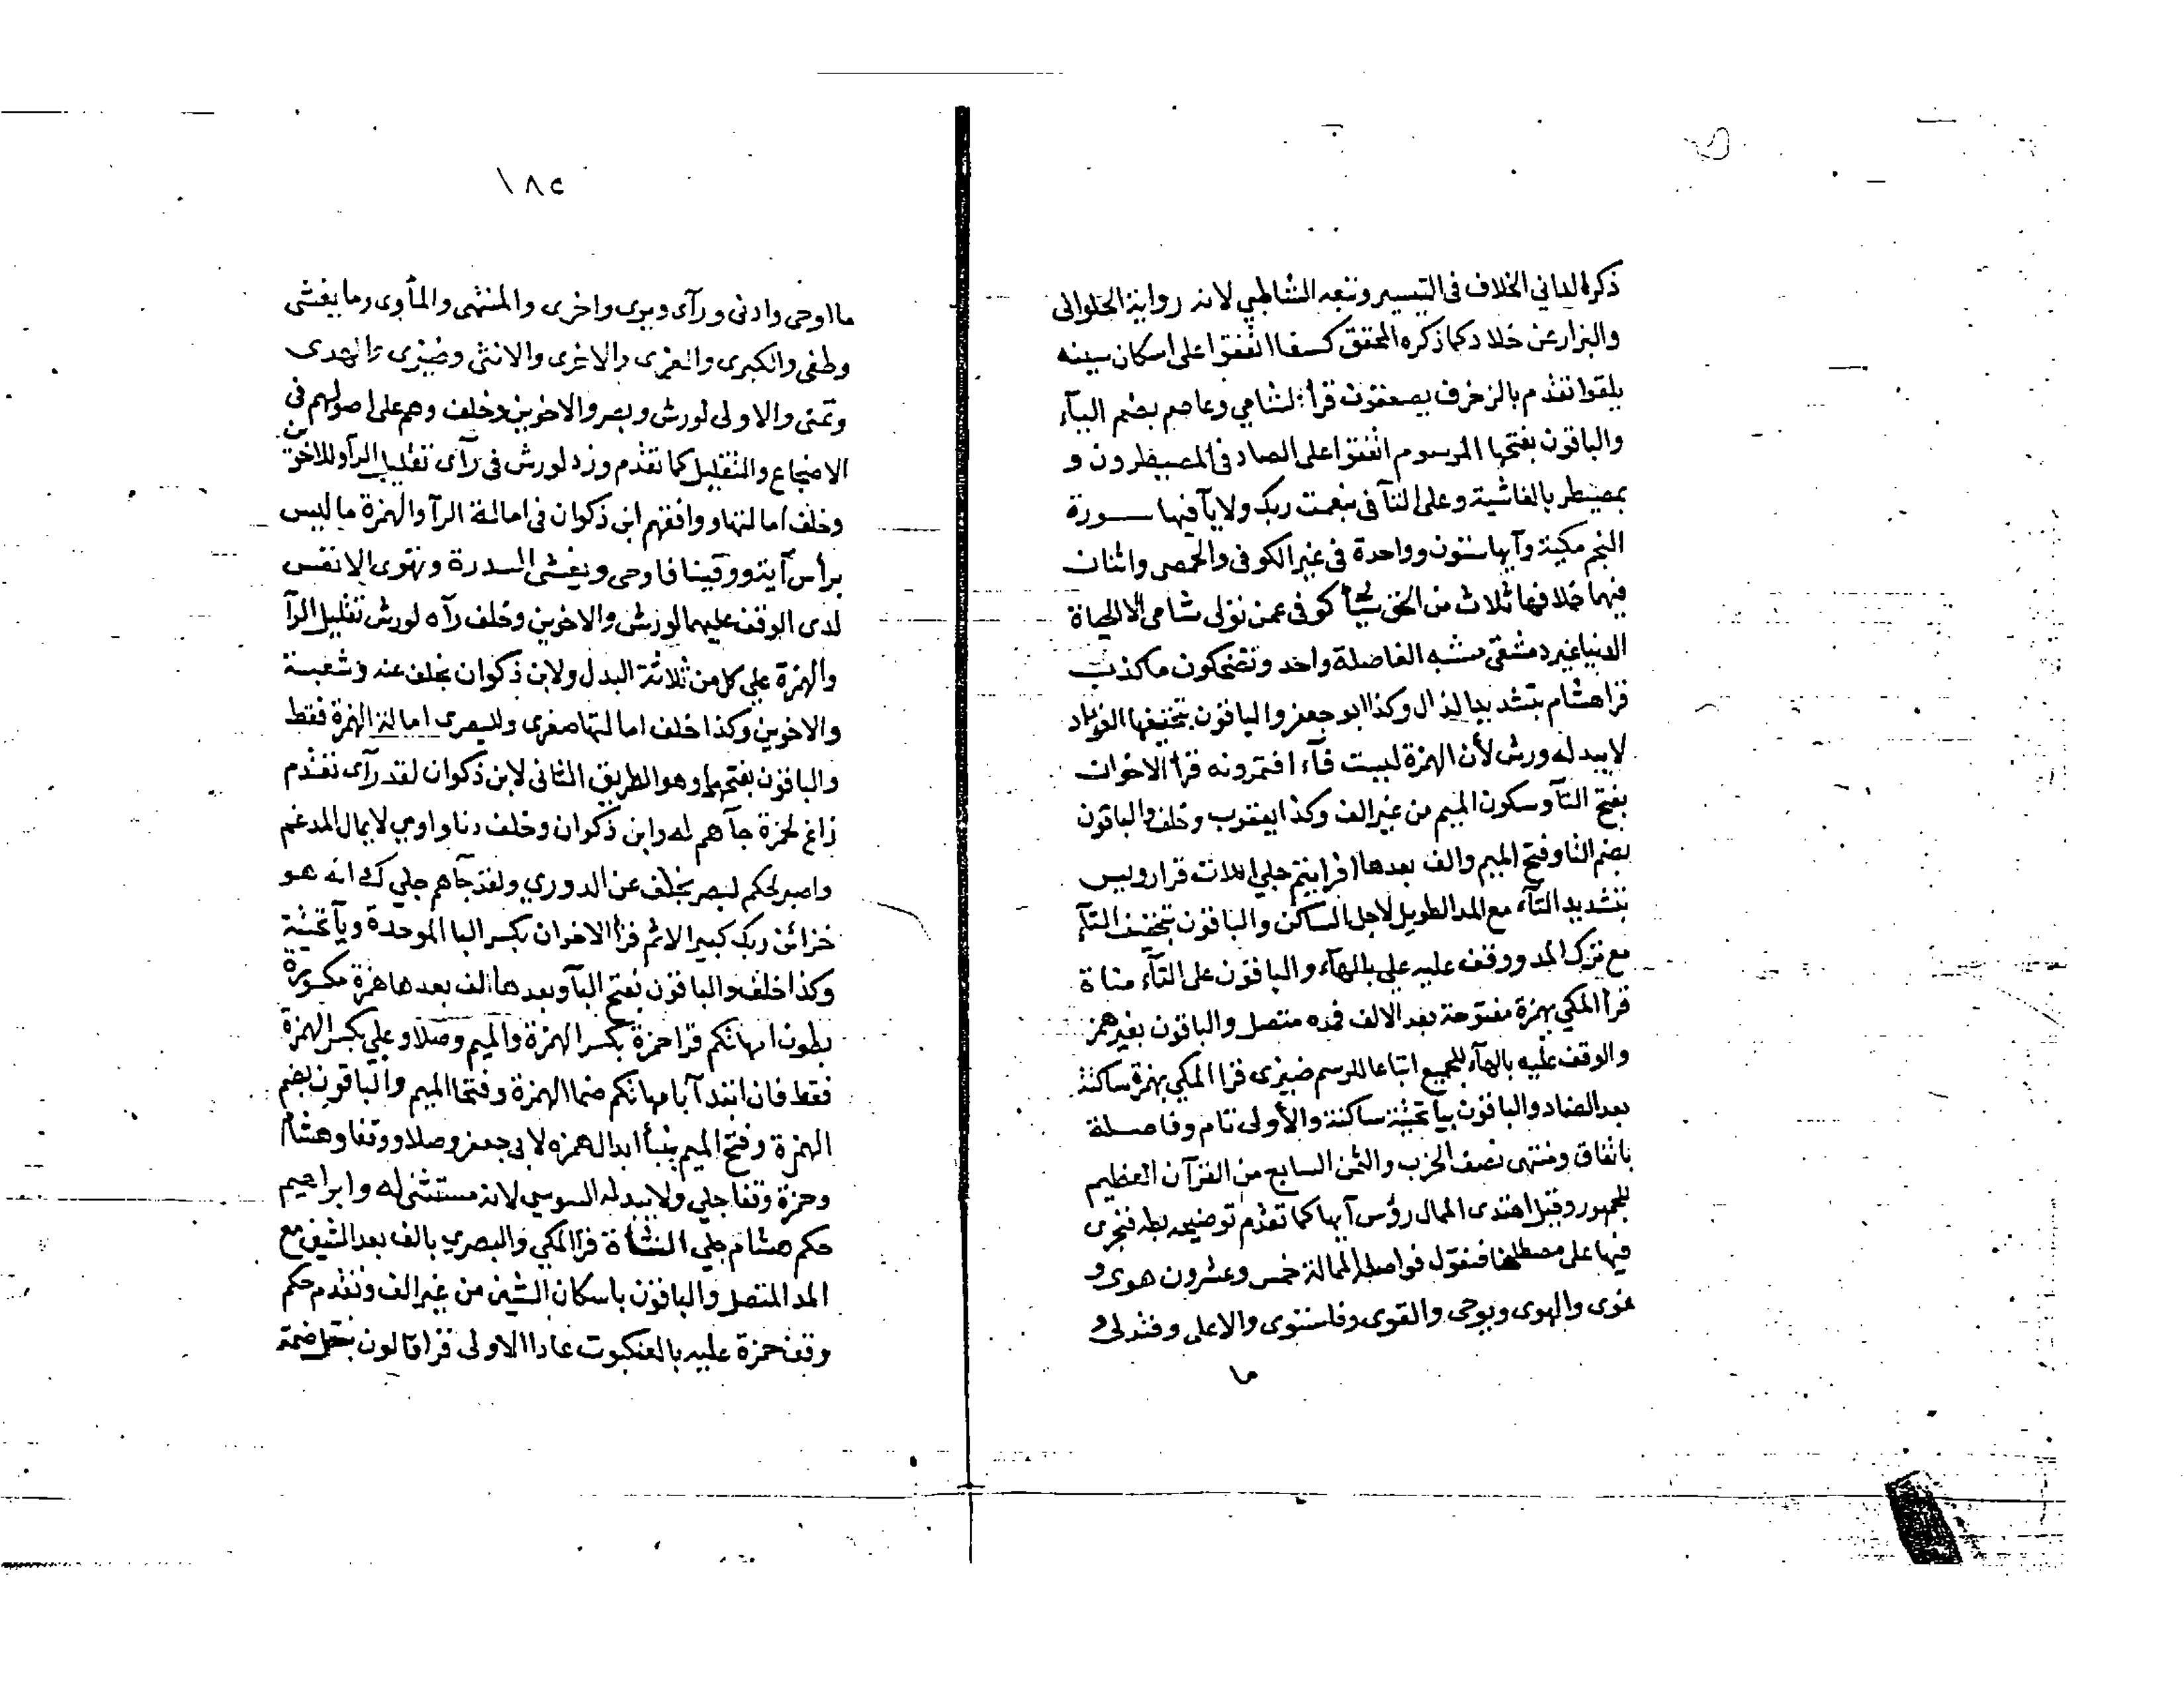 ذكره الداني الخلاف في التيسير وتبعه الشاطبي لانه رواية الحلواني
والبزار عن خلاد كما ذكره المحقق كسفا اتفقوا على اسكان سينه
يلقوا تقدم بالزخرف يصعقون قرأ الشامي وعاصم بضم اليآء
والباقون بفتحها المرسوم اتفقوا على الصاد في المصيطرون و
بمصيطر بالغاشية وعلى التآ في بنعمت ربك ولا يآ فيها سورة
النجم مكية وآيها ستون وواحدة في غير الكوفي والحمصي واثنان
فيهما خلافها ثلاث من الحق شيأ كوفي عمن تولى شامي الا الحياة
الدنيا غير دمشقي مشبه الفاصلة واحد وتضحكون ما كذب
قرا هشام بتشديد الذال وكذا ابو جعفر والباقون بتخفيفها الفؤاد
لا يبدله ورش لأن الهمزة ليست فآء افتمرونه قرأ الاخوان
بفتح التآ وسكون الميم من غير الف وكذا يعقوب وخلف والباقون
بضم التا وفتح الميم والف بعدها افرايتم جلي اللات قرا رويس
بتشديد التآء مع المد الطويل لاجل الساكن والباقون بتخفيف التآ
مع ترك المد ووقف عليه علي بالهآء والباقون على التآء مناة
قرأ المكي بهمزة مفتوحة بعد الالف فمده متصل والباقون بغير همز
والوقف عليه بالهآء للجميع اتباعا للرسم ضيزى قرا المكي بهمزة ساكنة
بعد الضاد والباقون بيآ تحتية ساكنة والأولى تام وفاصلة
باتفاق ومنتهى نصف الحزب والثمن السابع من القرآن العظيم
للجمهور وقيل اهتدى الممال رؤس آيها كما تقدم توضيحه بطه فنجرى
فيها على مصطلحنا فنقول فواصله الممالة خمس وعشرون هوى و
غوى والهوى ويوحى والقوى وفاستوى والاعلى وفتدلى و
ما
١٨٢
ما اوحى وادنى ورآى ويرى واخرى والمنتهى والمأوى وما يغشى
وطغى والكبرى والعزى والاخرى والانثى وضيزى والهدى
وتمنى والاولى لورش وبصر والاخوين وخلف وهم على اصولهم في
الاضجاع والتقليل كما تقدم وزد لورش في رآى تقليل الرآ وللاخوين
وخلف امالتها ووافقهم ابن ذكوان في امالة الرآ والهمزة ما ليس
برأس آية ووقينا فاوحى ويغشى السدرة وتهوى الانفس
لدى الوقف عليهما لورش والاخوين وخلف رآه لورش تقليل الرآ
والهمزة علي كل من ثلاثة البدل ولابن ذكوان بخلف عنه وشعبة
والاخوين وكذا خلف امالتها صغرى وللبصرى امالة الهمزة فقط
والباقون بفتحهما وهو الطريق الثاني لابن ذكوان لقد رآى تقدم
زاغ لحمزة جآهم له وابن ذكوان وخلف دنا واوي لا يمال المدغم
واصبر لحكم لبصر بخلف عن الدوري ولقد جآهم جلي ك انه هو
خزائن ربك كبير الاثم قرأ الاخوان بكسر البا الموحدة ويآ تحتية
وكذا خلف والباقون بفتح البآ وبعدها الف بعدها همزة مكسورة
بطون امهاتكم قرا حمزة بكسر الهمزة والميم وصلا وعلي بكسر الهمزة
فقط فان ابتدآ بامهاتكم ضما الهمزة وفتحا الميم والباقون بضم
الهمزة وفتح الميم ينبأ ابدال همزه لابي جعفر وصلا ووقفا وهشام
وحمزة وقفا جلي ولا يبدله السوسي لانه مستثنى له وابراهيم
حكم هشام جلي النشاة قرأ المكي والبصري بالف بعد الشين مع
المد المتصل والباقون باسكان الشين من غير الف وتقدم حكم
وقف حمزة عليه بالعنكبوت عادا الاولى قرا قالون بنقل ضمة